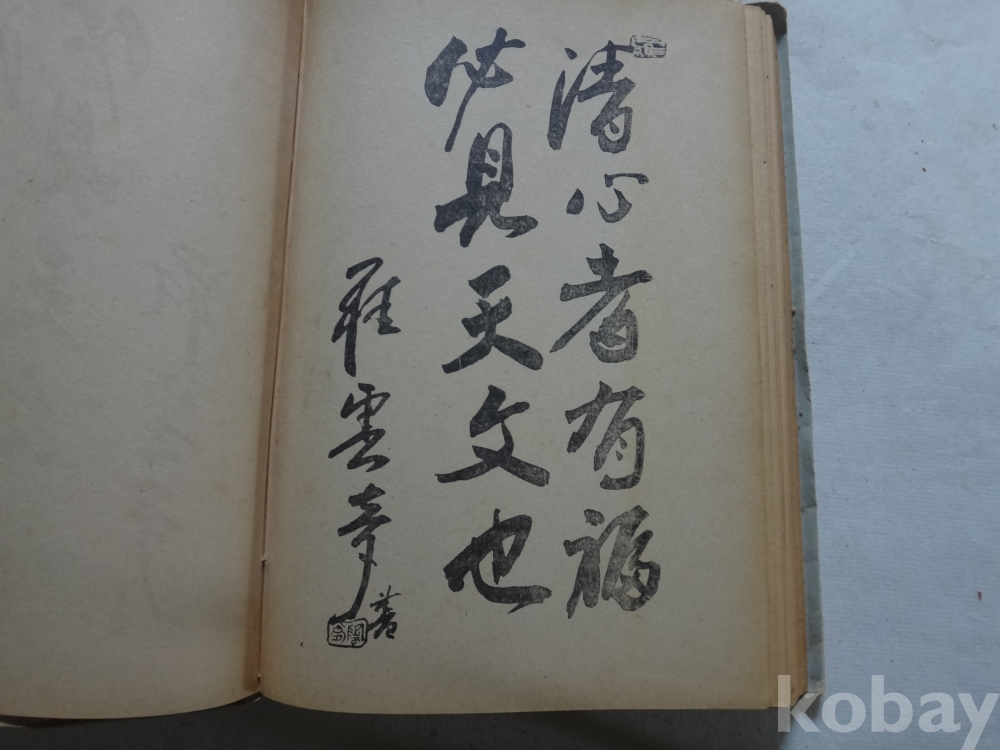 清心者有福
必見天文也
崔雲亭 著
kobay